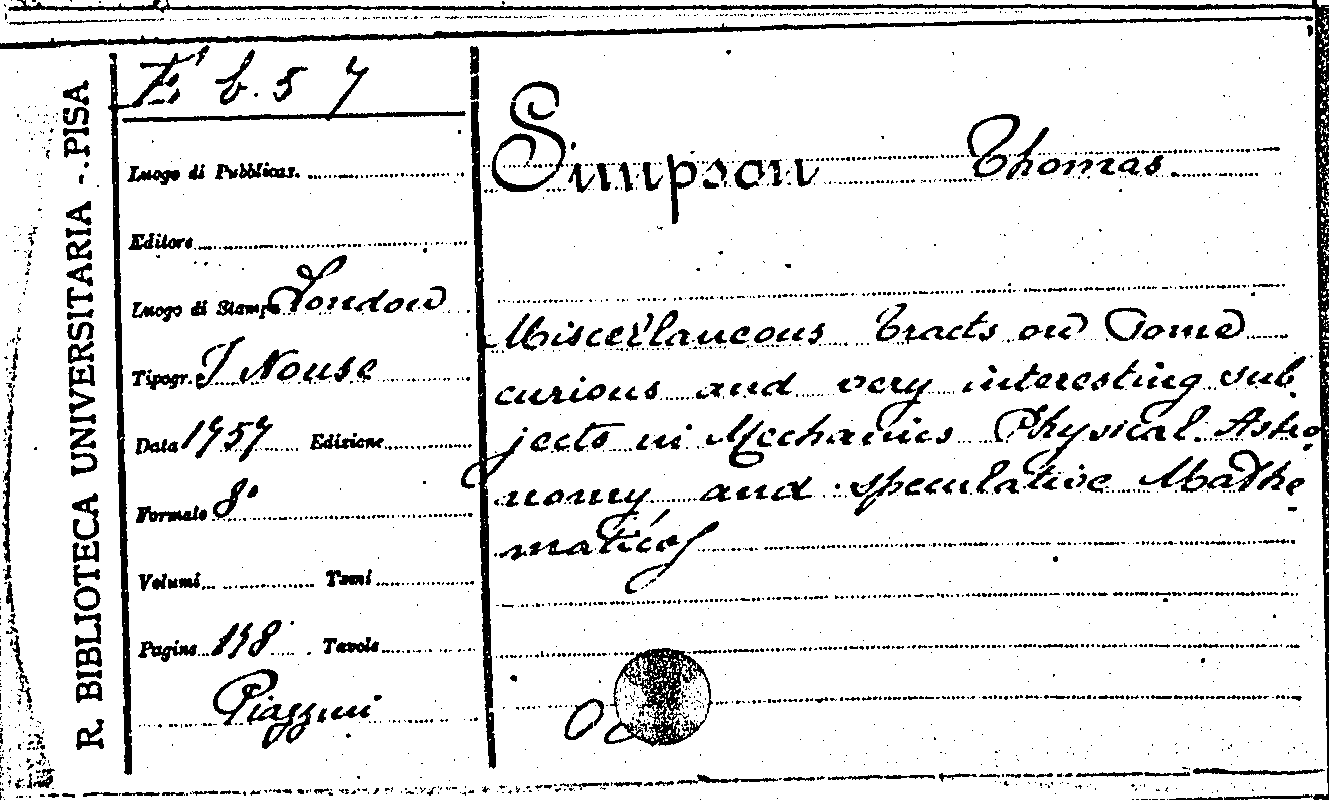 R. BIBLIOTECA UNIVERSITARIA - PISA
E' b. 5 7
Luogo di Pubblicaz.
Editore
Luogo di Stampa London
Tipogr. J Nouse
Data 1757 Edizione
Formato 8°
Volumi Tomi
Pagine 178 Tavole
Piazzini
Simpson Thomas.
Miscellaneous Tracts on Some
curious and very interesting sub
jects in Mechanics Physical Astro
nomy, and speculative Mathe
matics